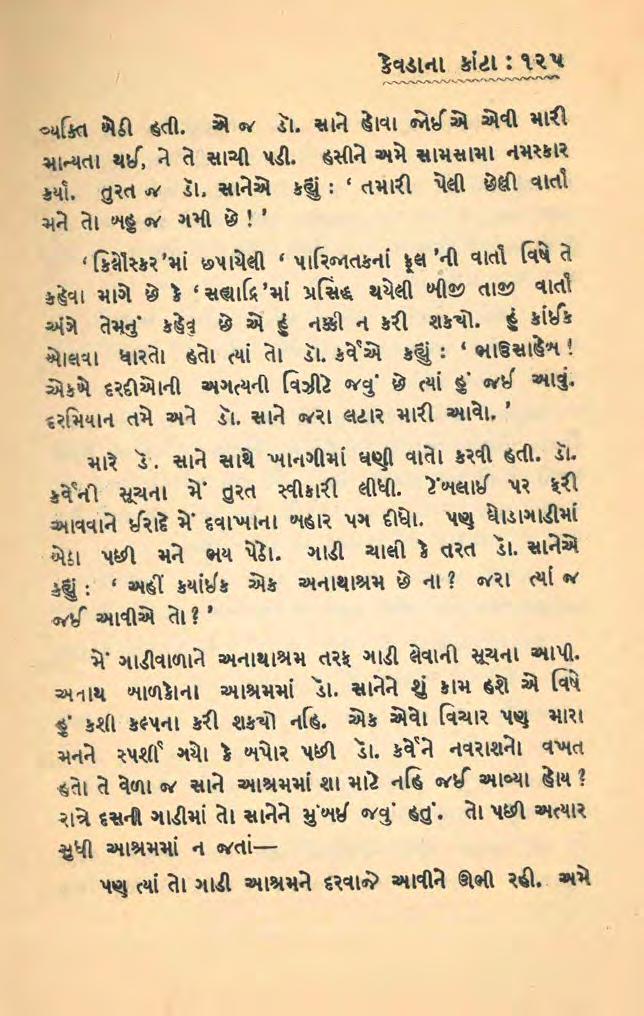 કેવડાના કાંટા : ૧૨૫
વ્યક્તિ બેઠી હતી. એ જ ડૉ. સાને હોવા જોઈએ એવી મારી
માન્યતા થઈ, ને તે સાચી પડી. હસીને અમે સામસામા નમસ્કાર
કર્યા. તુરત જ ડૉ. સાનેએ કહ્યું : ‘ તમારી પેલી છેલ્લી વાર્તા
મને તો બહુ જ ગમી છે ! ’
‘ કિર્લોસ્કર ’માં છપાયેલી ‘ પારિજાતકનાં ફૂલ ’ની વાર્તા વિષે તે
કહેવા માગે છે કે ‘ સહ્યાદ્રિ ’માં પ્રસિદ્ધ થયેલી બીજી તાજી વાર્તા
અંગે તેમનું કહેવુ છે એ હું નક્કી ન કરી શકયો. હું કાંઈક
બોલવા ધારતો હતો ત્યાં તો ડૉ. કર્વેએ કહ્યું : ‘ ભાઉસાહેબ !
એકબે દરદીઓની અગત્યની વિઝીટે જવું છે ત્યાં હું જઈ આવું.
દરમિયાન તમે અને ડૉ. સાને જરા લટાર મારી આવો. ’
મારે ડૉ. સાને સાથે ખાનગીમાં ઘણી વાતો કરવી હતી. ડૉ.
કર્વેની સૂચના મેં તુરત સ્વીકારી લીધી. ટેંબલાઈ પર ફરી
આવવાને ઈરાદે મેં દવાખાના બહાર પગ દીધો. પણ ઘોડાગાડીમાં
બેઠા પછી મને ભય પેઠો. ગાડી ચાલી કે તરત ડૉ. સાનેએ
કહ્યું : ‘ અહીં કયાંઈક એક અનાથાશ્રમ છે ના ? જરા ત્યાં જ
જઈ આવીએ તો ? ’
મેં ગાડીવાળાને અનાથાશ્રમ તરફ ગાડી લેવાની સૂચના આપી.
અનાથ બાળકોના આશ્રમમાં ડૉ. સાનેને શું કામ હશે એ વિષે
હું કશી કલ્પના કરી શકચો નહિ. એક એવો વિચાર પણ મારા
મનને સ્પર્શી ગયો કે બપોર પછી ડૉ. કર્વેને નવરાશનો વખત
હતો તે વેળા જ સાને આશ્રમમાં શા માટે નહિ જઈ આવ્યા હોય ?
રાત્રે દસની ગાડીમાં તો સાનેને મુંબઈ જવું હતું. તો પછી અત્યાર
સુધી આશ્રમમાં ન જતાં—
પણ ત્યાં તો ગાડી આશ્રમને દરવાજે આવીને ઊભી રહી. અમે